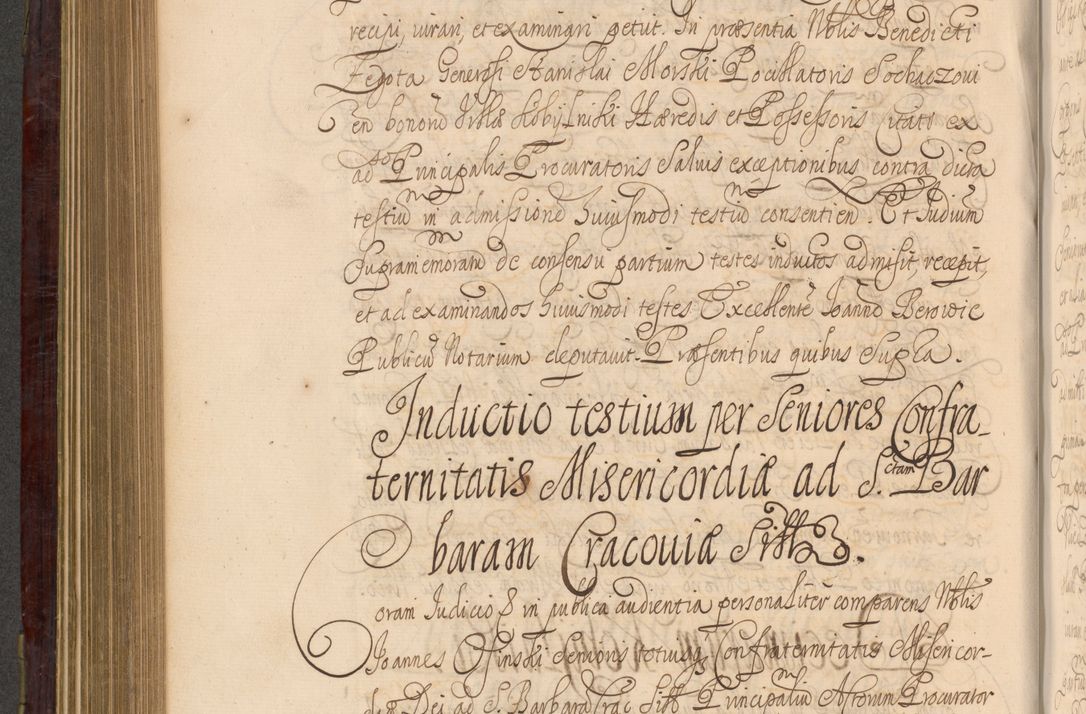 recipi, iurari, et examinari petiit. In præsentia Nblis Benedicti
Zegota Generosi Stanislai Morski Pocillatoris Sochaczovien
en bonorũ Villæ Kobylniki Hæredis et Possessoris Citati ex
ad Principalis Procuratoris Salvis exceptionibus contra dicta
testiũ in admissionẽ huiusmodi testiũ consentien. Et Iudium
supramemoratũ de consensu partium testes inductos admisit, recepit,
et ad examinandos huiusmodi testes Excellentẽ Ioannẽ Berowic
Publicũ Notarium deputavit. Præsentibus quibus Supra.
Inductio testium per Seniores Confra-
ternitatis Misericordiæ ad S.ctam Bar
baram Cracoviæ Sitt
oram Iudicio & in publica audientia personaliter comparens Nblis
Ioannes Senioris totiusq Confraternitatis Misericor-
diæ Dei ad S. Barbara Crac Sitt Principaliũ Actorum Procurator